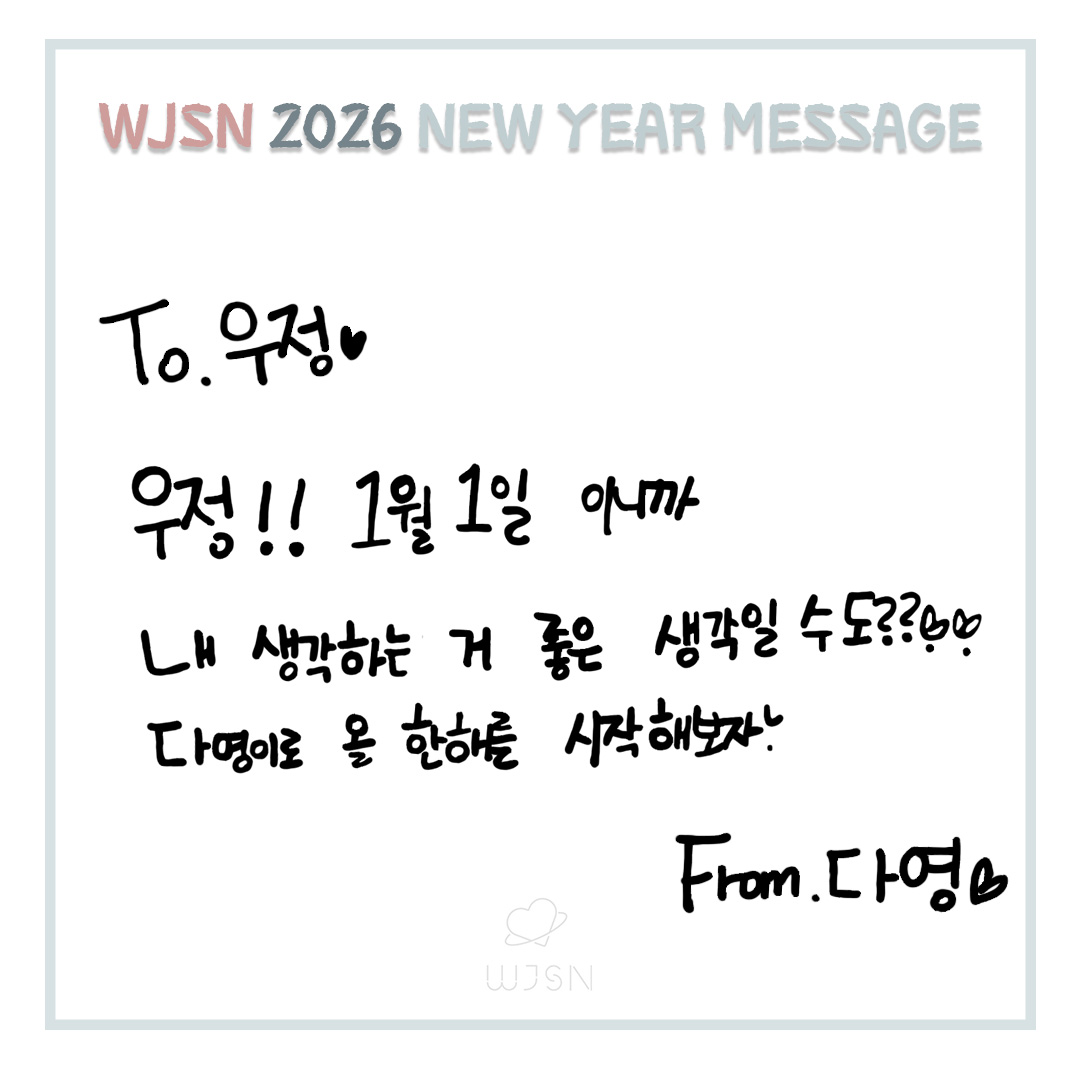 WJSN 2026 NEW YEAR MESSAGE
To. 우정♥
우정!! 1월 1일 아니까
내 생각하는 거 좋은 생각일 수도??♡♡
다영이로 올 한해를 시작해보자!
From. 다영♡
WJSN